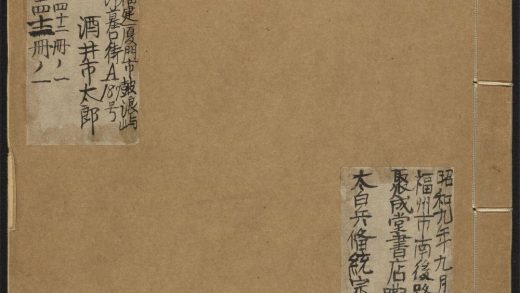 昭和九年九月
福州市南後路
聚成堂書店
太白兵備統宗
福建厦門市鼓浪嶼
墓口街A189号
酒井市太郎
四十二冊ノ一
四十二冊ノ一